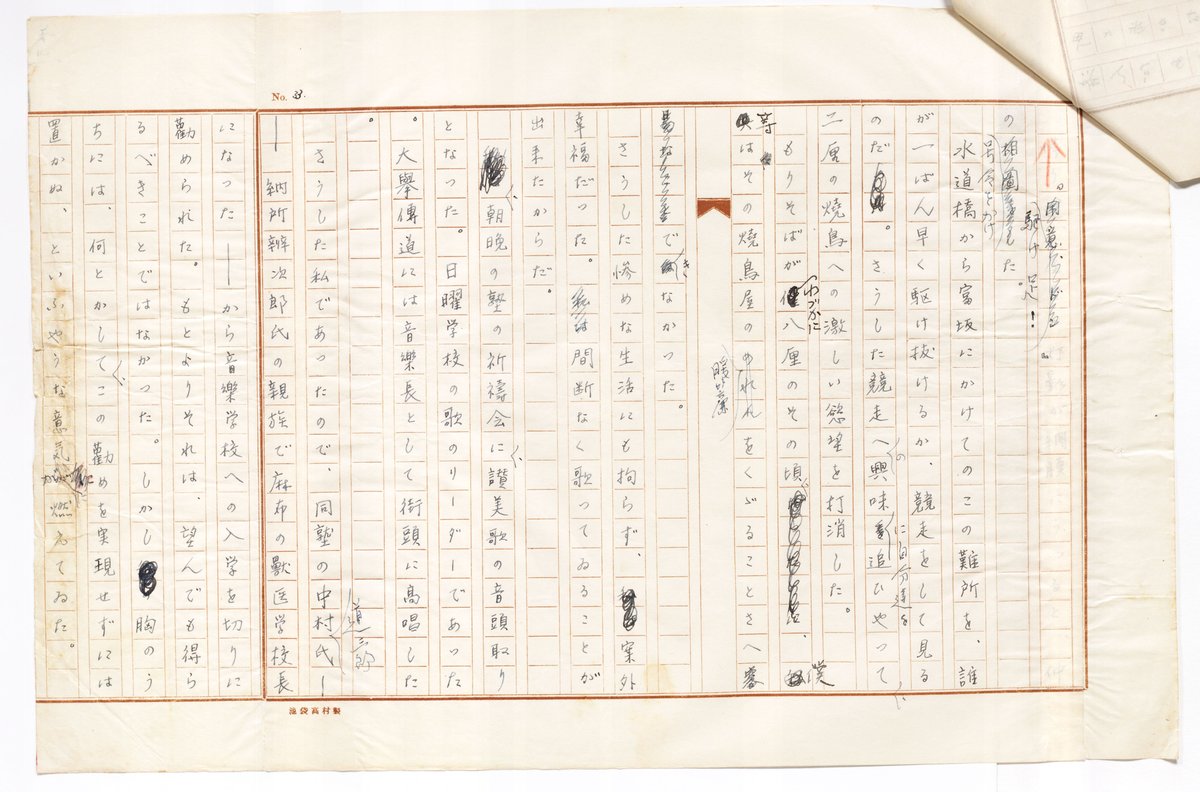 No. 33.
駆け足!
の号令をかけた。
水道橋から富坂にかけてのこの難所を、誰
が一ばん早く駆け抜けるか、競走をして見る
のだ。さうした競走への興味に自分達を追ひやつて、
二厘の焼鳥への激しい慾望を打消した。
もりそばがわづかに八厘のその頃、僕
等はその焼鳥屋の暖簾をくぐることさへ容
易でなかつた。
さうした惨めな生活にも拘らず、案外
幸福だつた。間断なく歌つてゐることが
出来たからだ。
朝晩の塾の祈禱会に、讃美歌の音頭取り
となつた。日曜学校の歌のリーダーであつた
。大擧傳道には音樂長として街頭に高唱した
。
さうした私であつたので、同塾の中村道三郎氏—
—納所辨次郎氏の親族で麻布の獸医学校長
になつた——から音樂学校への入学を切りに
勸められた。もとよりそれは、望んでも得ら
るべきことではなかつた。しかし胸のう
ちには、何とかして、この勸めを実現せずには
置かぬ、といふやうな意気が燃えてゐた。
池袋高村製